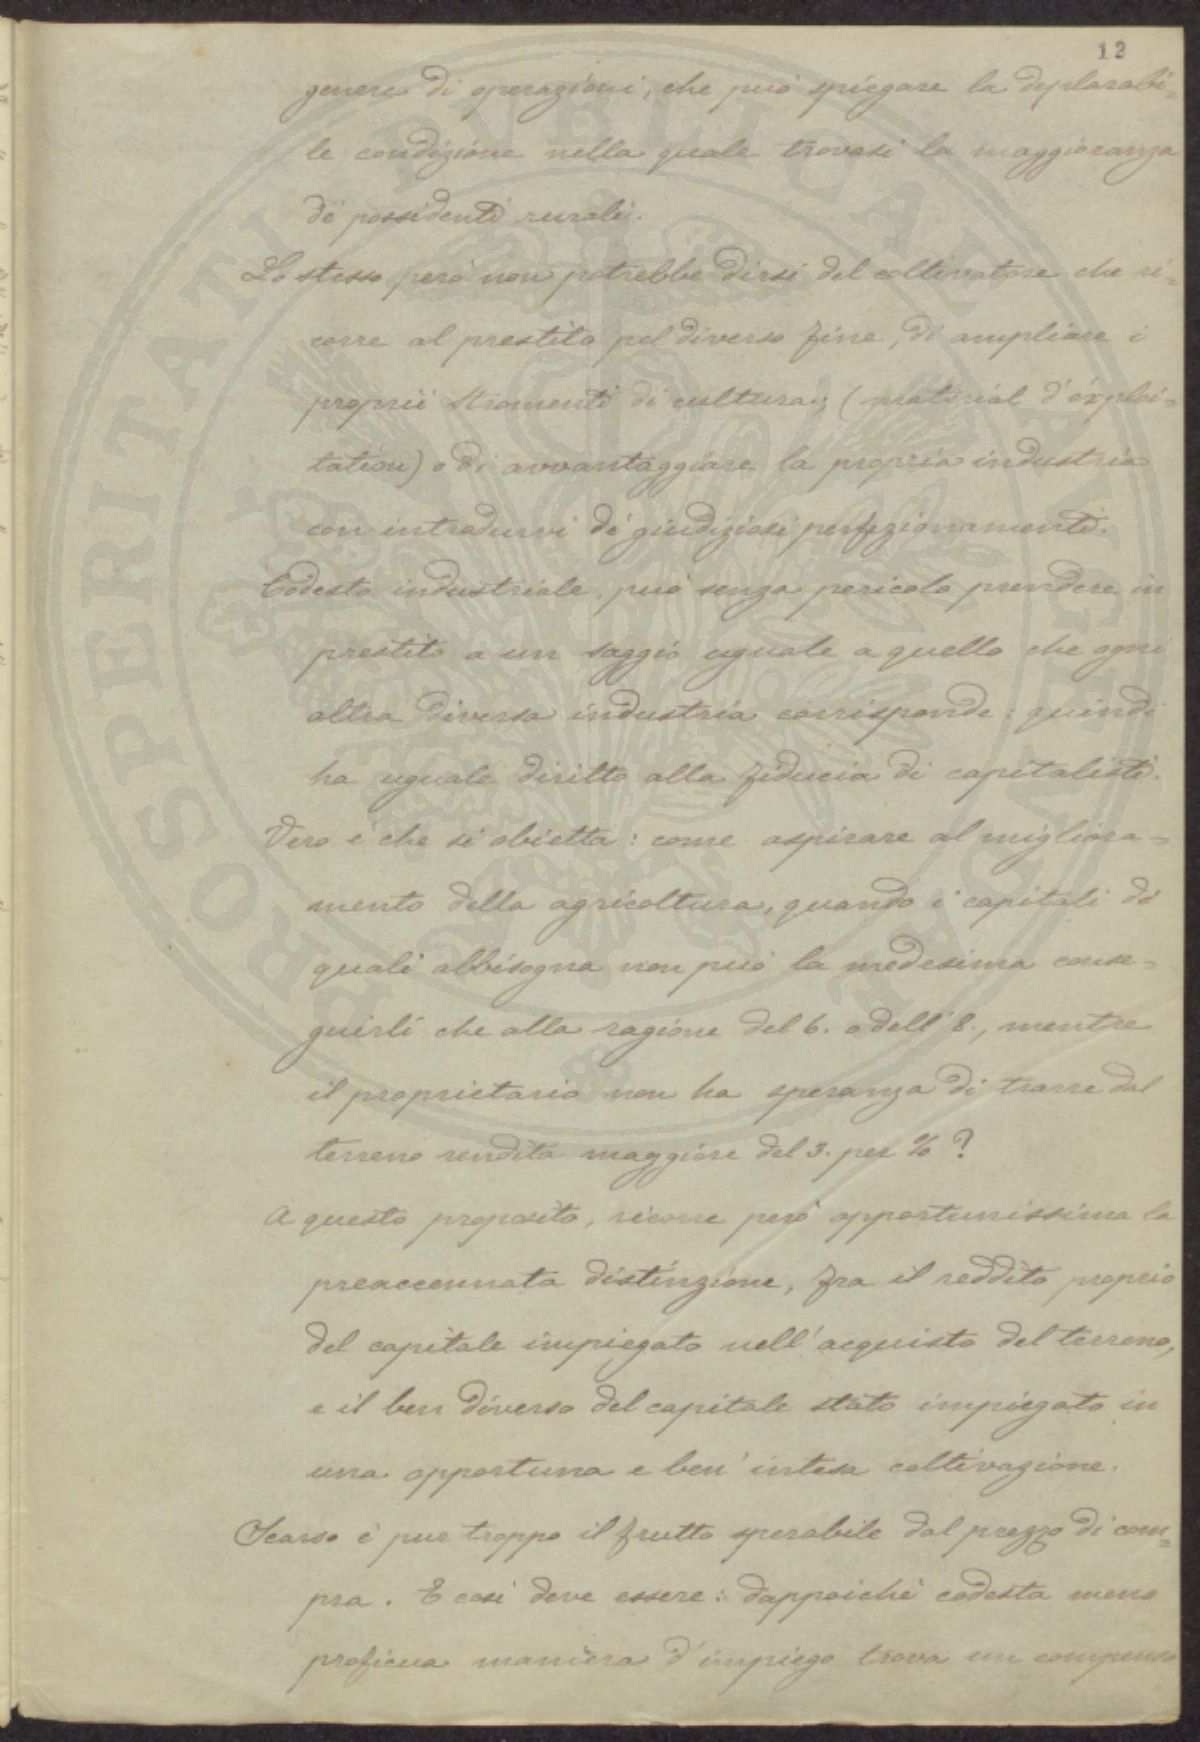 12
genere di operazioni, che può spiegare la deplorabi-
le condizione nella quale trovasi la maggioranza
de' possidenti rurali.
Lo stesso però non potrebbe dirsi del coltivatore che ri-
corre al prestito pel diverso fine, di ampliare i
proprii stromenti di cultura; (matérial d'éxploi-
tation) o di avvantaggiare la propria industria
con introdurvi de' giudiziosi perfezionamenti.
Codesto industriale, può senza pericolo prendere in
prestito a un saggio uguale a quello che ogni
altra diversa industria corrisponde: quindi
ha uguale diritto alla fiducia di capitalisti.
Vero è che si obietta: come aspirare al migliora-
mento della agricoltura, quando i capitali de'
quali abbisogna non può la medesima conse-
guirli che alla ragione del 6. o dell' 8., mentre
il proprietario non ha speranza di trarre dal
terreno rendita maggiore del 3. per % ?
A questo proposito, ricorre però opportunissima la
preaccennata distinzione, fra il reddito proprio
del capitale impiegato nell'acquisto del terreno,
e il ben diverso del capitale stato impiegato in
una opportuna e ben' intesa coltivazione.
Scarso è pur troppo il frutto sperabile dal prezzo di com-
pra. E così deve essere: dappoichè codesta meno
proficua maniera d'impiego trova un compenso
PROSPERITATI PVBLICAE AVGENDAE